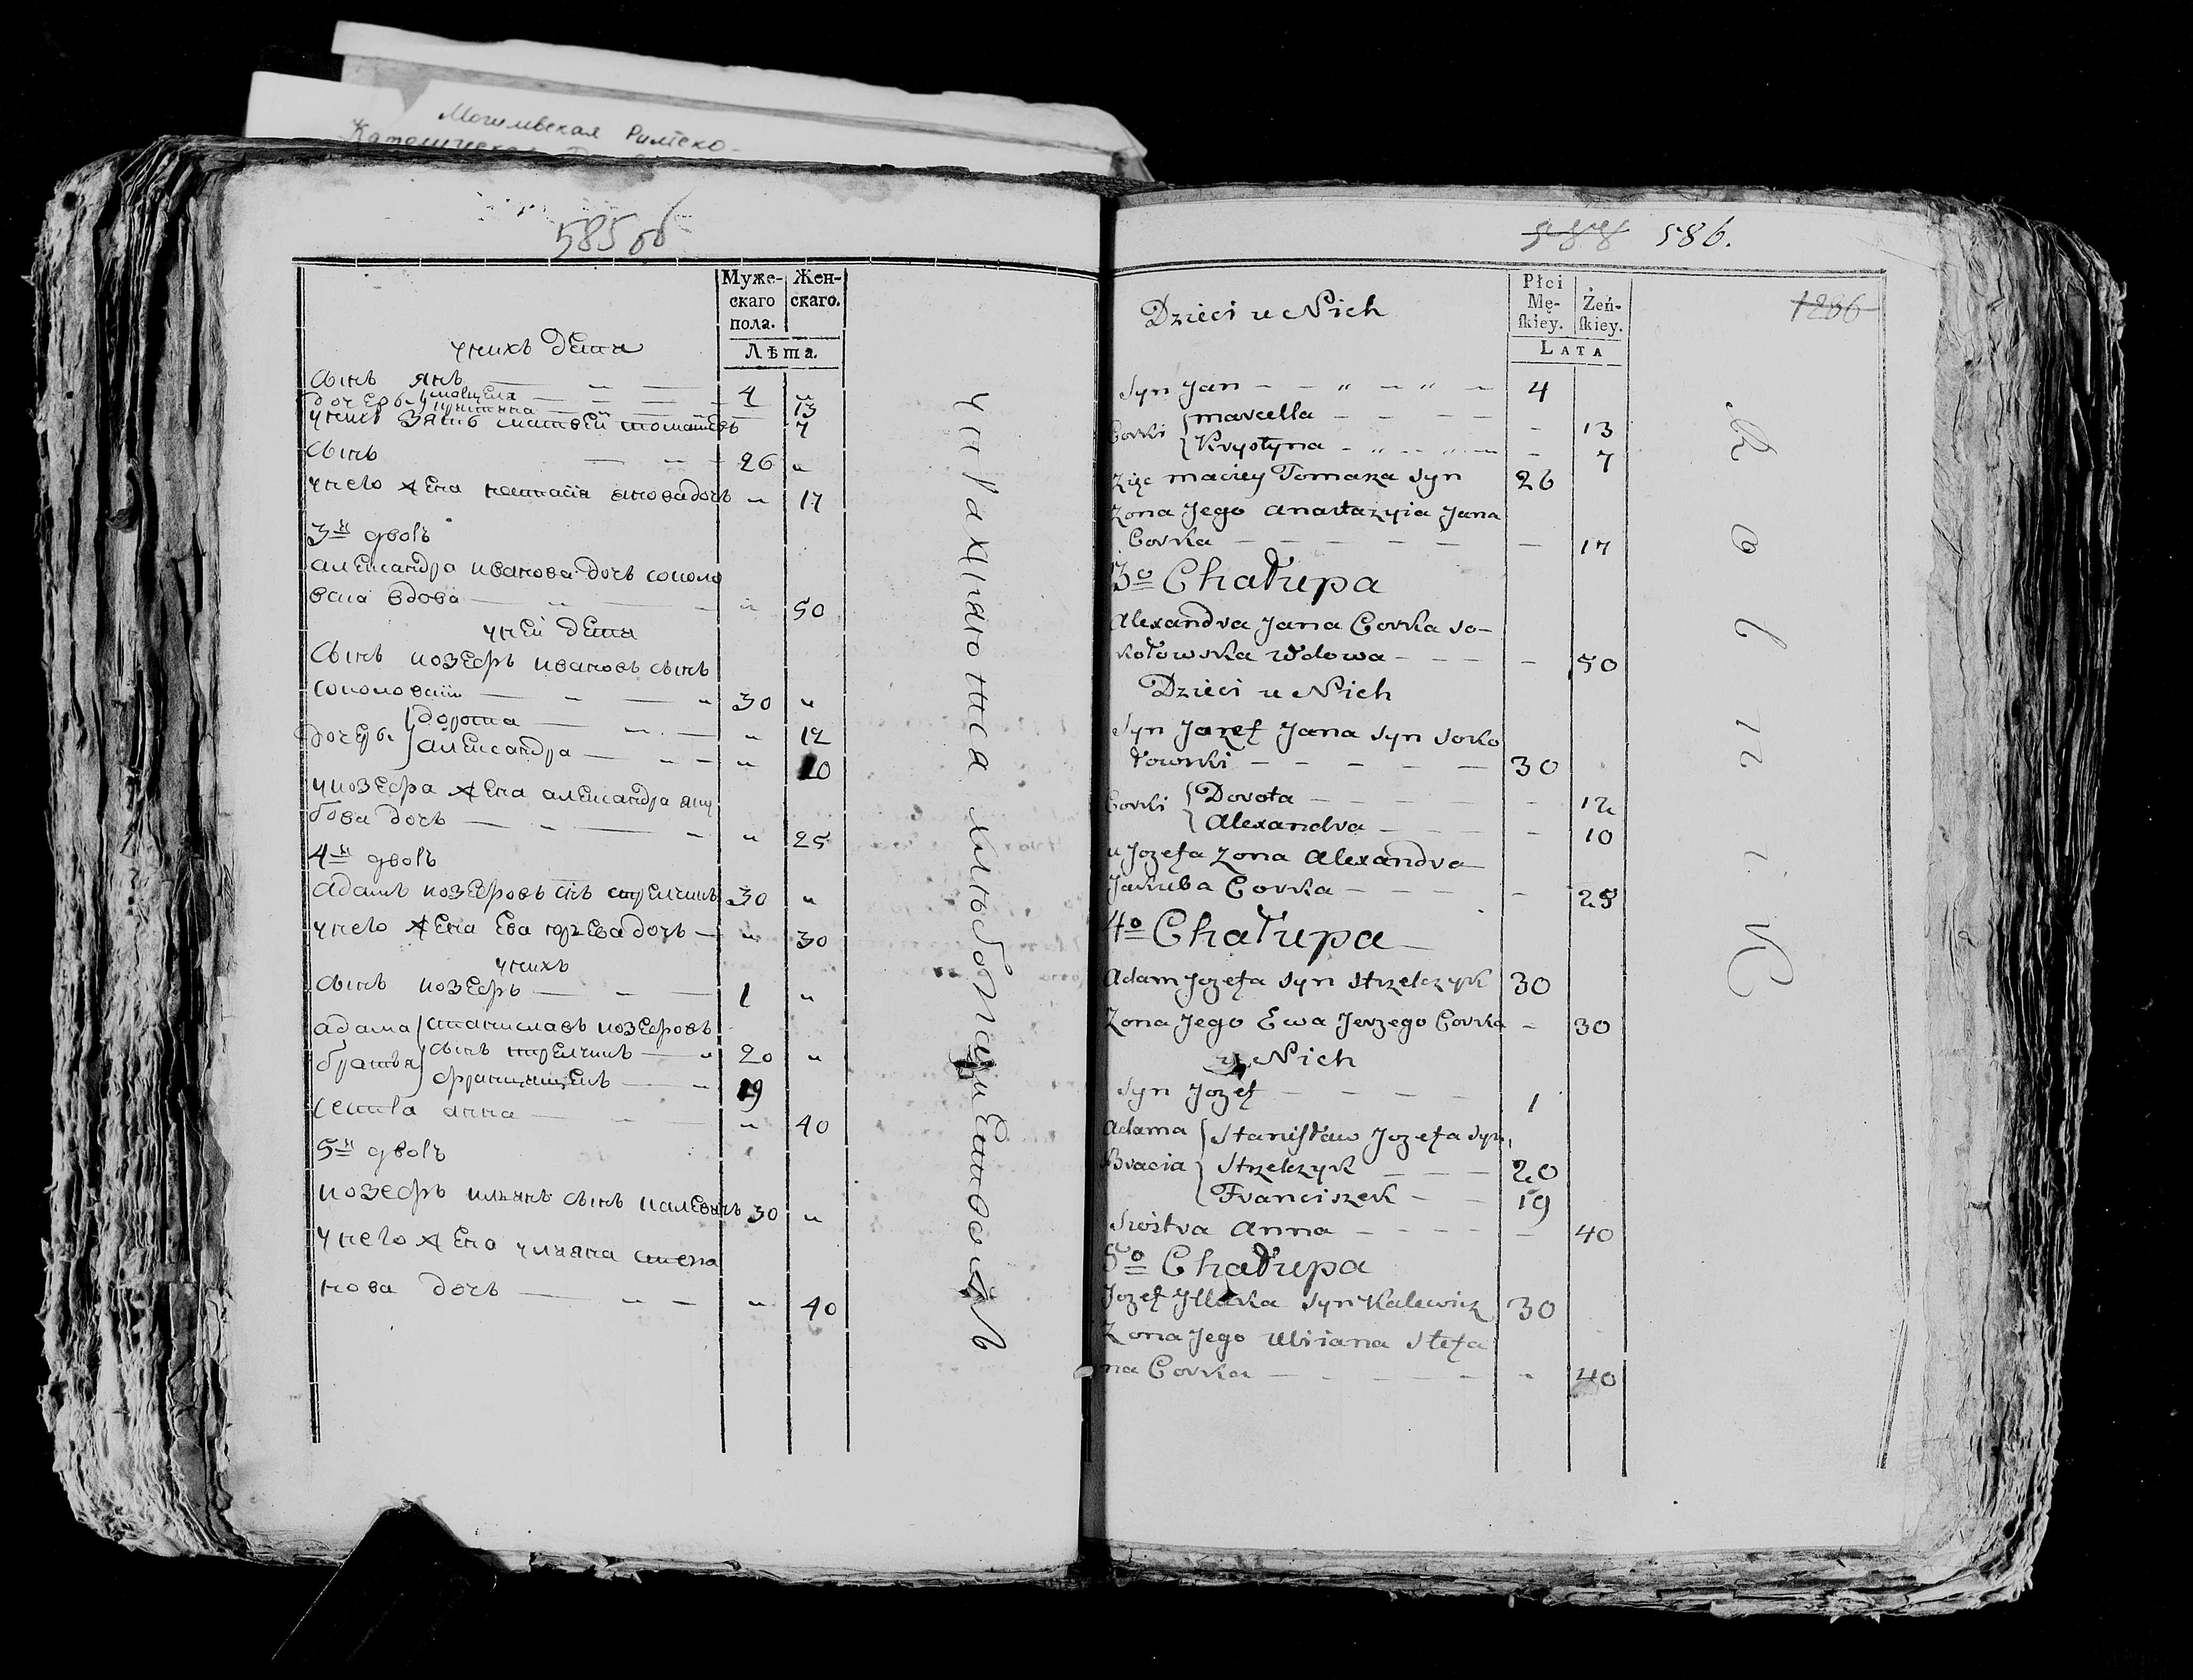 Могилевская Римско-
Католическая
585 об
Муже-
скаго
пола.
Жен-
скаго.
Лѣта.
у нихъ дети
сынъ янъ — „ — 4 „
дочери марцеля — — — 13
криштина — — — 7
у нихъ зять матвей томашевъ
сынъ — „ — 26 „
у него жена настасiя янова дочь „ 17
3й дворъ
александра иванова дочь соколо
вска вдова — „ — „ 50
у ней дети
Сынъ иозефъ ивановъ сынъ
соколовскiй — „ — „ 30 „
дочери дорота — „ — „ 12
александра — „ — „ 10
у иозефа жена александра яку
бова дочь — „ — „ 25
4й дворъ
адамъ иозефовъ снъ стрелчикъ 30 „
у него жена Ева юрьева дочь — „ 30
у нихъ
сынъ иозефъ — „ — 1 „
адама станиславъ иозефовъ
братья сынъ стрелчикъ — „ 20 „
францишекъ — „ 19
сестра анна — „ — „ 40
5й дворъ
иозефъ ильинъ сынъ калевичъ 30 „
у него жена ульяна степа
нова дочь — „ — „ 40
588 586.
1286
Dzieci u Nich
Płci
Mę-
ſkiey.
Żeń-
ſkiey.
LATA
Syn Jan — — „ — „ — 4
Corki marcella — — — — - 13
Krystyna - „ - - „ - - 7
Zięc maciey Tomasza Syn 26
Zona Jego Anastazyia Jana
Corka — — — — — — 17
3o Chałupa
Alexandra Jana Corka So-
kołowska Wdowa - — — - 50
Dzieci u Nich
Syn Jozef Jana Syn Soko
łowski — — — — — 30
Corki Dorota — — — - 12
Alexandra — — — — - 10
u Jozefa Zona Alexandra
Jakuba Corka — — — — - 25
4o Chałupa
Adam Jozefa Syn Strzelczyk 30
Zona Jego Ewa Jerzego Corka - 30
u Nich
Syn Jozef — — — — 1
Adama Staniſław Jozefa Syn,
Bracia Strzelczyk — — — 20
Franciszek — — 19
Siostra Anna — — — — — 40
5o Chałupa
Jozef Jlliaka Syn Kalewicz 30
Zona Jego Uliiana Stefa
na Corka — — — — — - 40